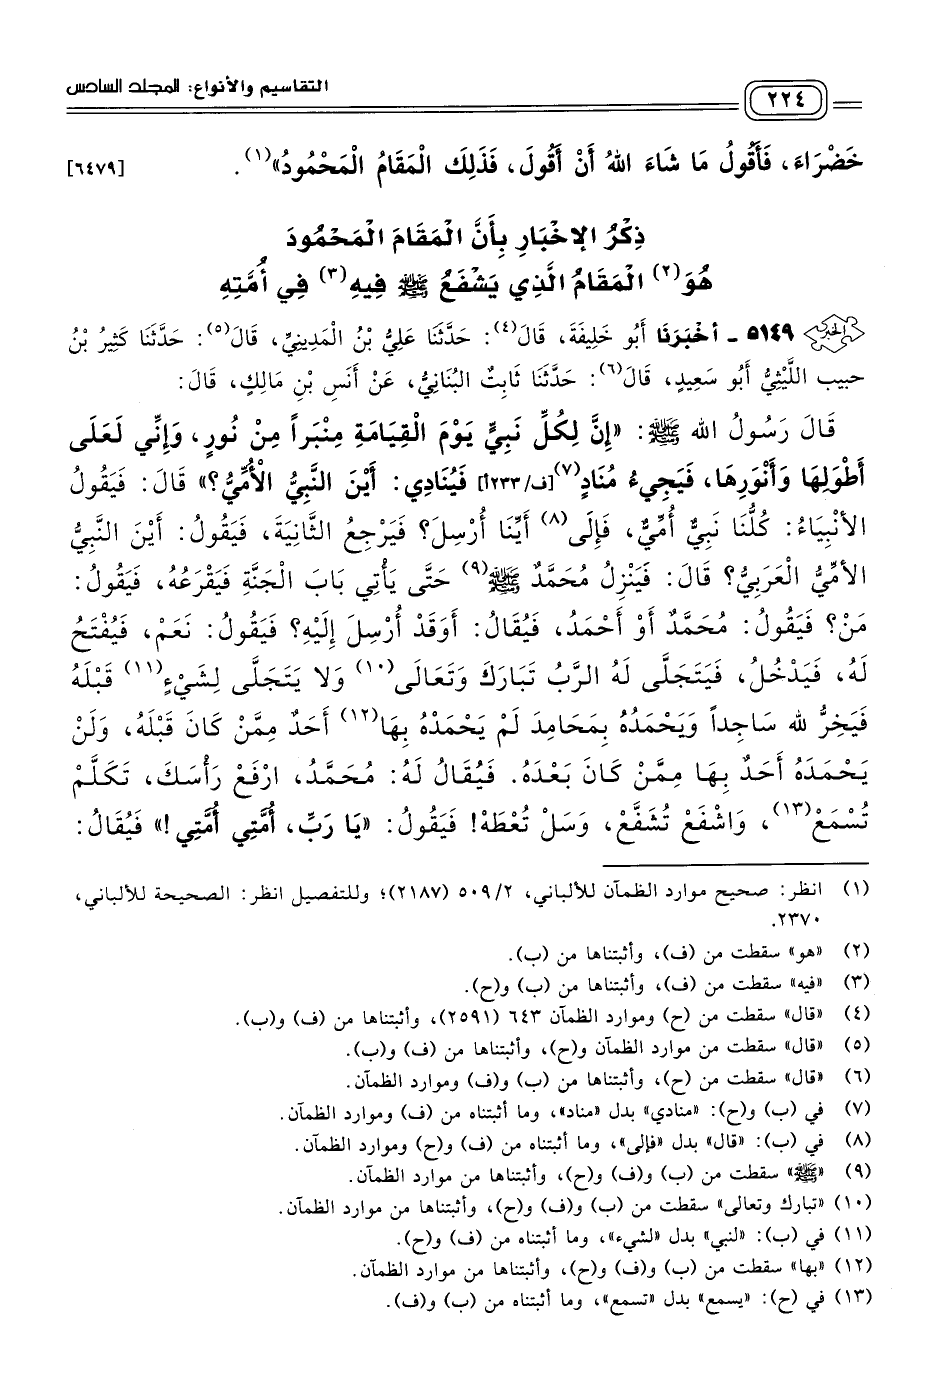 ٢٢٤ التقاسيم والأنواع: المجلد السادس
خَضْرَاءَ، فَأَقُولُ مَا شَاءَ اللهُ أَنْ أَقُولَ، فَذَلِكَ الْمَقَامُ الْمَحْمُودُ»(١). [٦٤٧٩]
ذِكْرُ الإِخْبَارِ بِأَنَّ الْمَقَامَ الْمَحْمُودَ
هُوَ(٢) الْمَقَامُ الَّذِي يَشْفَعُ ﷺ فِيهِ(٣) فِي أُمَّتِهِ
الخبر ٥١٤٩ ـ أَخْبَرَنَا أَبُو خَلِيفَةَ، قَالَ(٤): حَدَّثَنَا عَلِيُّ بْنُ الْمَدِينِيِّ، قَالَ(٥): حَدَّثَنَا كَثِيرُ بْنُ
حبيب اللَّيْثِيُّ أَبُو سَعِيدٍ، قَالَ(٦): حَدَّثَنَا ثَابِتٌ الْبُنَانِيُّ، عَنْ أَنَسِ بْنِ مَالِكٍ، قَالَ:
قَالَ رَسُولُ الله ﷺ: «إِنَّ لِكُلِّ نَبِيٍّ يَوْمَ الْقِيَامَةِ مِنْبَراً مِنْ نُورٍ، وَإِنِّي لَعَلَى
أَطْوَلِهَا وَأَنْوَرِهَا، فَيَجِيءُ مُنَادٍ(٧)[ف/٢٣٣أ] فَيُنَادِي: أَيْنَ النَّبِيُّ الْأُمِّيُّ؟» قَالَ: فَيَقُولُ
الأَنْبِيَاءُ: كُلُّنَا نَبِيٌّ أُمِّيٌّ، فَإِلَى(٨) أَيِّنَا أُرْسِلَ؟ فَيَرْجِعُ الثَّانِيَةَ، فَيَقُولُ: أَيْنَ النَّبِيُّ
الأُمِّيُّ الْعَرَبِيُّ؟ قَالَ: فَيَنْزِلُ مُحَمَّدٌ ﷺ(٩) حَتَّى يَأْتِي بَابَ الْجَنَّةِ فَيَقْرَعُهُ، فَيَقُولُ:
مَنْ؟ فَيَقُولُ: مُحَمَّدٌ أَوْ أَحْمَدُ، فَيُقَالُ: أَوَقَدْ أُرْسِلَ إِلَيْهِ؟ فَيَقُولُ: نَعَمْ، فَيُفْتَحُ
لَهُ، فَيَدْخُلُ، فَيَتَجَلَّى لَهُ الرَّبُّ تَبَارَكَ وَتَعَالَى(١٠) وَلَا يَتَجَلَّى لِشَيْءٍ(١١) قَبْلَهُ
فَيَخِرُّ لله سَاجِداً وَيَحْمَدُهُ بِمَحَامِدَ لَمْ يَحْمَدْهُ بِهَا(١٢) أَحَدٌ مِمَّنْ كَانَ قَبْلَهُ، وَلَنْ
يَحْمَدَهُ أَحَدٌ بِهَا مِمَّنْ كَانَ بَعْدَهُ. فَيُقَالُ لَهُ: مُحَمَّدُ، ارْفَعْ رَأْسَكَ، تَكَلَّمْ
تُسْمَعْ(١٣)، وَاشْفَعْ تُشَفَّعْ، وَسَلْ تُعْطَهْ! فَيَقُولُ: «يَا رَبِّ، أُمَّتِي أُمَّتِي!» فَيُقَالُ:
(١) انظر: صحيح موارد الظمآن للألباني، ٥٠٩/٢ (٢١٨٧)؛ وللتفصيل انظر: الصحيحة للألباني،
٢٣٧٠.
(٢) «هو» سقطت من (ف)، وأثبتناها من (ب).
(٣) «فيه» سقطت من (ف)، وأثبتناها من (ب) و(ح).
(٤) «قال» سقطت من (ح) وموارد الظمآن ٦٤٣ (٢٥٩١)، وأثبتناها من (ف) و(ب).
(٥) «قال» سقطت من موارد الظمآن و(ح)، وأثبتناها من (ف) و(ب).
(٦) «قال» سقطت من (ح)، وأثبتناها من (ب) و(ف) وموارد الظمآن.
(٧) في (ب) و(ح): «منادي» بدل «مناد»، وما أثبتناه من (ف) وموارد الظمآن.
(٨) في (ب): «قال» بدل «فإلى»، وما أثبتناه من (ف) و(ح) وموارد الظمآن.
(٩) «ﷺ» سقطت من (ب) و(ف) و(ح)، وأثبتناها من موارد الظمآن.
(١٠) «تبارك وتعالى» سقطت من (ب) و(ف) و(ح)، وأثبتناها من موارد الظمآن.
(١١) في (ب): «لنبي» بدل «لشيء»، وما أثبتناه من (ف) و(ح).
(١٢) «بها» سقطت من (ب) و(ف) و(ح)، وأثبتناها من موارد الظمآن.
(١٣) في (ح): «يسمع» بدل «تسمع»، وما أثبتناه من (ب) و(ف).